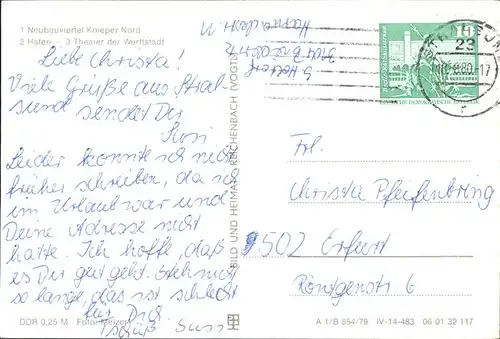 1 Neubauviertel Knieper Nord
2 Hafen – 3 Theater der Werftstadt
Liebe Christa!
Viele Grüße aus Stral-
sund sendet Dir
Susi
Leider konnte ich nicht
früher schreiben, da ich
im Urlaub war und
Deine Adresse nicht
hatte. Ich hoffe, daß
es Dir gut geht. Steh nicht
so lange, das ist schlecht
für Dich.
Tschüß Susi
DDR 0,25 M Foto: Melzer
BILD UND HEIMAT REICHENBACH (VOGTL)
STRALSUND
23
80-17
10
DEUTSCHE DEMOKRATISCHE REPUBLIK
Frl.
Christa Pfeifenbring
502 Erfurt
Röntgenstr. 6
A 1/B 654/79 IV-14-483 06 01 32 117